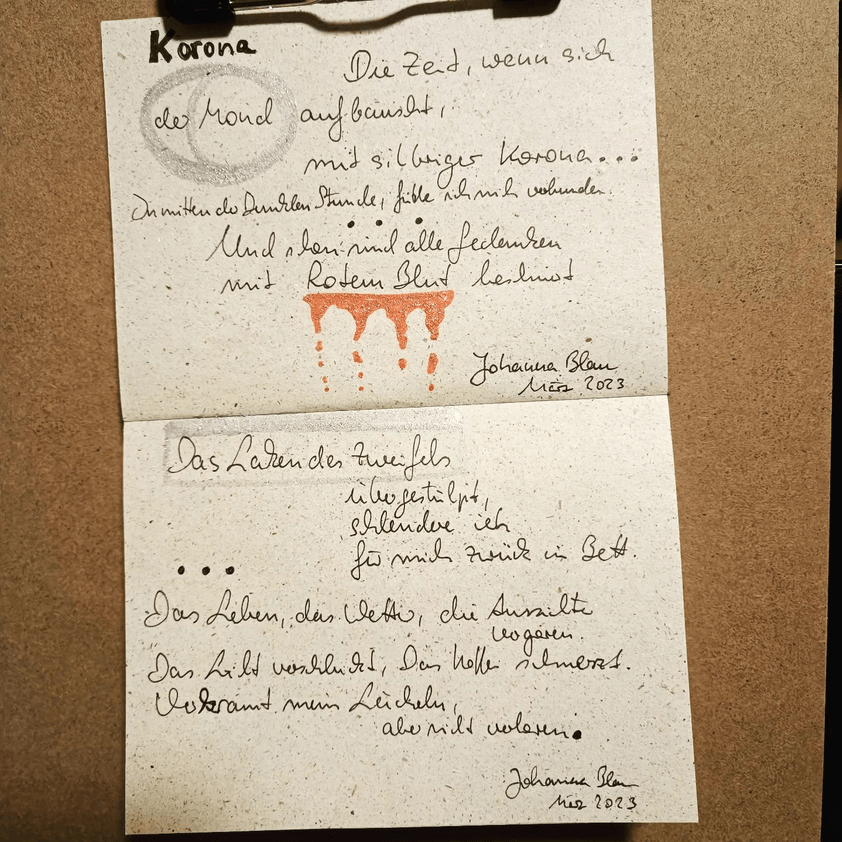 Korona
Die Zeit, wenn sich
der Mond aufbauscht,
mit silbriger Korona...
Inmitten der Dunklen Stunde, fühle ich mich verbunden.
...
Und schon sind alle Gedanken
mit Rotem Blut beschmiert
Johanna Blau
März 2023
Das Laken des Zweifels
übergestülpt,
schlendere ich
für mich zurück in Bett.
...
Das Leben, das Wetter, die Aussichten
vergären.
Das Licht verschluckt, Das Hoffen schmerzt.
Verkramt mein Lächeln,
aber nicht verloren.
Johanna Blau
März 2023